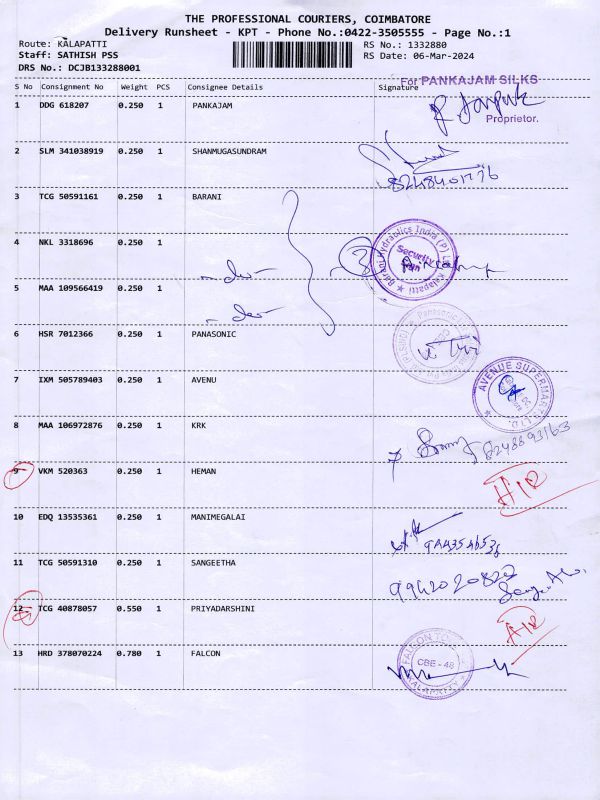 THE PROFESSIONAL COURIERS, COIMBATORE
Delivery Runsheet - KPT - Phone No.:0422-3505555 - Page No.:1
Route: KALAPATTI RS No.: 1332880
Staff: SATHISH PSS RS Date: 06-Mar-2024
DRS No.: DCJB133288001
S No Consignment No Weight PCS Consignee Details Signature
For PANKAJAM SILKS
1 DDG 618207 0.250 1 PANKAJAM
Proprietor.
2 SLM 341038919 0.250 1 SHANMUGASUNDRAM
3 TCG 50591161 0.250 1 BARANI
4 NKL 3318696 0.250 1
Barani Hydraulics India (P) Ltd Kalapatti
Security
5 MAA 109566419 0.250 1
6 HSR 7012366 0.250 1 PANASONIC
Panasonic
7 IXM 505789403 0.250 1 AVENU
AVENUE SUPERMARTS LTD.
8 MAA 106972876 0.250 1 KRK
9 VKM 520363 0.250 1 HEMAN
10 EDQ 13535361 0.250 1 MANIMEGALAI
11 TCG 50591310 0.250 1 SANGEETHA
12 TCG 40878057 0.550 1 PRIYADARSHINI
13 HRD 378070224 0.780 1 FALCON
FALCON
CBE - 48
KALAPATTY